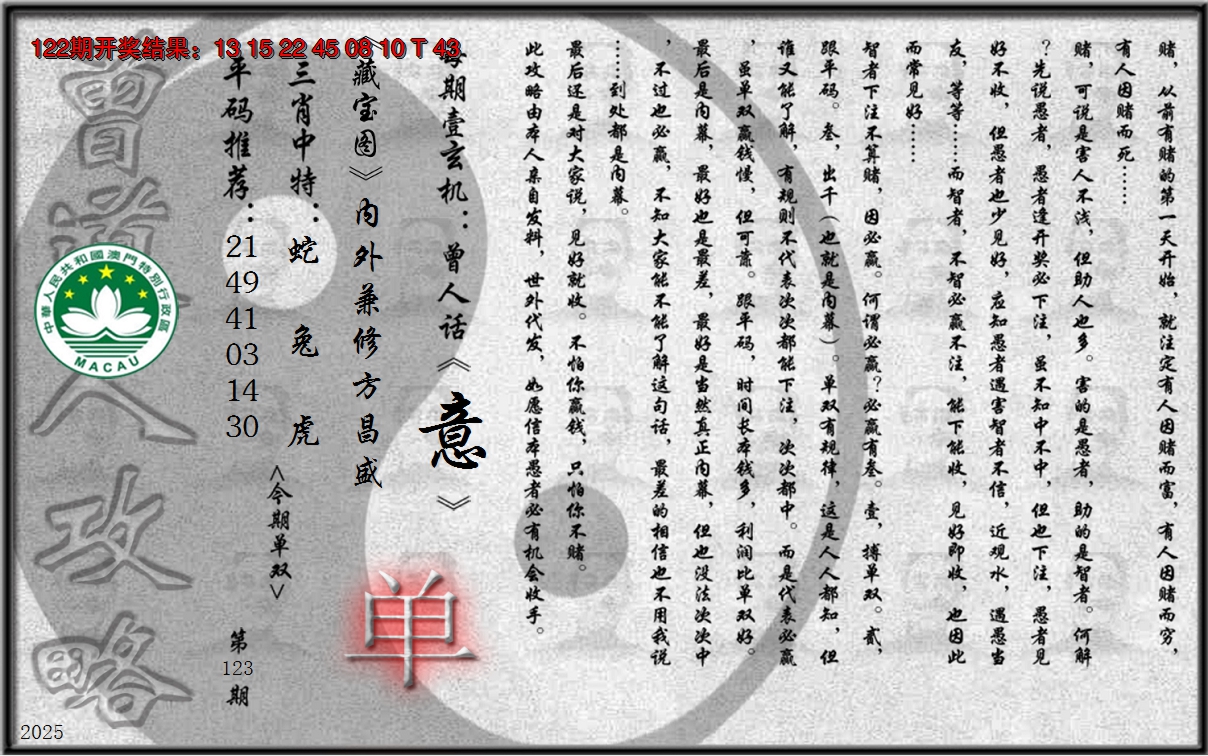 122期开奖结果：13 15 22 45 08 10 T 43
赌，从前有赌的第一天开始，就注定有人因赌而富，有人因赌而穷，
有人因赌而死……
赌，可说是害人不浅，但助人也多。害的是愚者，助的是智者。何解
？先说愚者，愚者逢开奖必下注，虽不知中不中，但也下注，愚者见
好不收，但愚者也少见好，应知愚者遇害智者不信，近观水，遇愚当
友，等等……而智者，不智必赢不注，能下能收，见好即收，也因此
而常见好……
智者下注不算赌，因必赢。何谓必赢？必赢有叁。壹，搏单双。贰，
跟平码。叁，出千（也就是内幕）。单双有规律，这是人人都知，但
谁又能了解，有规则不代表次次都能下注，次次都中。而是代表必赢
，虽单双赢钱慢，但可靠。跟平码，时间长本钱多，利润比单双好。
最后是内幕，最好也是最差，最好是当然真正内幕，但也没法次次中
，不过也必赢，不知大家能不能了解这句话，最差的相信也不用我说
……到处都是内幕。
最后还是对大家说，见好就收。不怕你赢钱，只怕你不赌。
此攻略由本人亲自发料，世外代发，如愿信本愚者必有机会收手。
每期壹玄机：曾人话《意》
《藏宝图》内外兼修方昌盛
单
三肖中特：蛇 兔 虎
<今期单双>
平码推荐：21 49 41 03 14 30
第123期
曾道人攻略
中華人民共和國澳門特別行政區
MACAU
2025